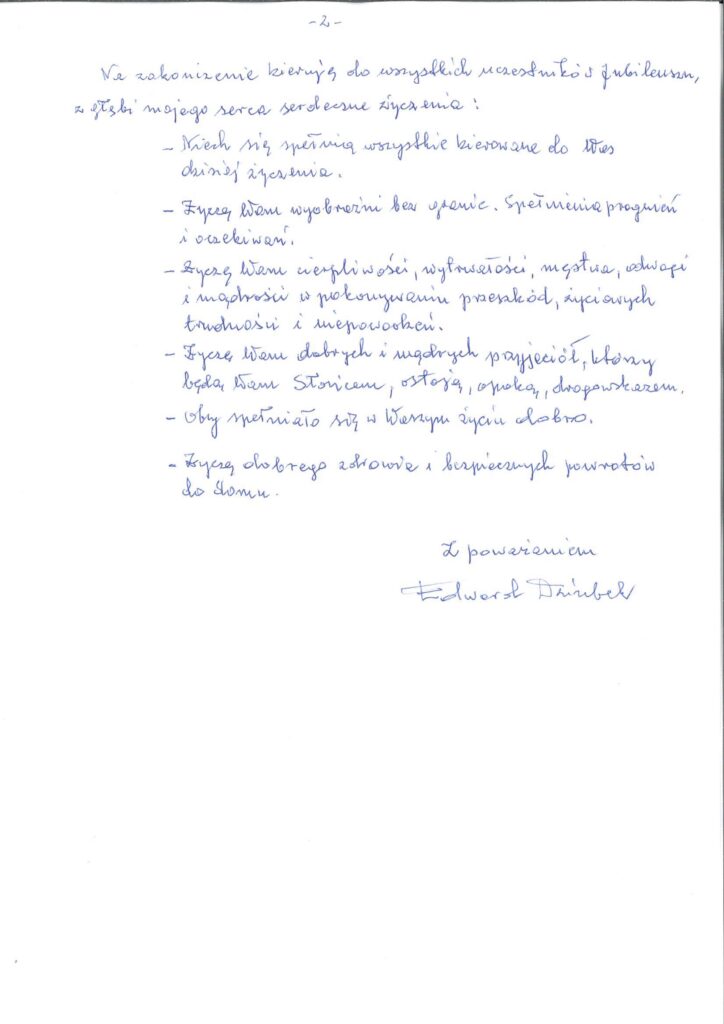 -2-
Na zakończenie kieruję do wszystkich uczestników Jubileuszu,
z głębi mojego serca serdeczne życzenia:
- Niech się spełnią wszystkie kierowane do Was
dzisiej życzenia.
- Życzę Wam wyobraźni bez granic. Spełnienia pragnień
i oczekiwań.
- Życzę Wam cierpliwości, wytrwałości, męstwa, odwagi
i mądrości w pokonywaniu przeszkód, życiowych
trudności i niepowodzeń.
- Życzę Wam dobrych i mądrych przyjaciół, którzy
będą Wam Słońcem, ostoją, opoką, drogowskazem.
- Oby spełniało się w Waszym życiu dobro.
- Życzę dobrego zdrowia i bezpiecznych powrotów
do domu.
Z poważaniem
Edward Dziubek